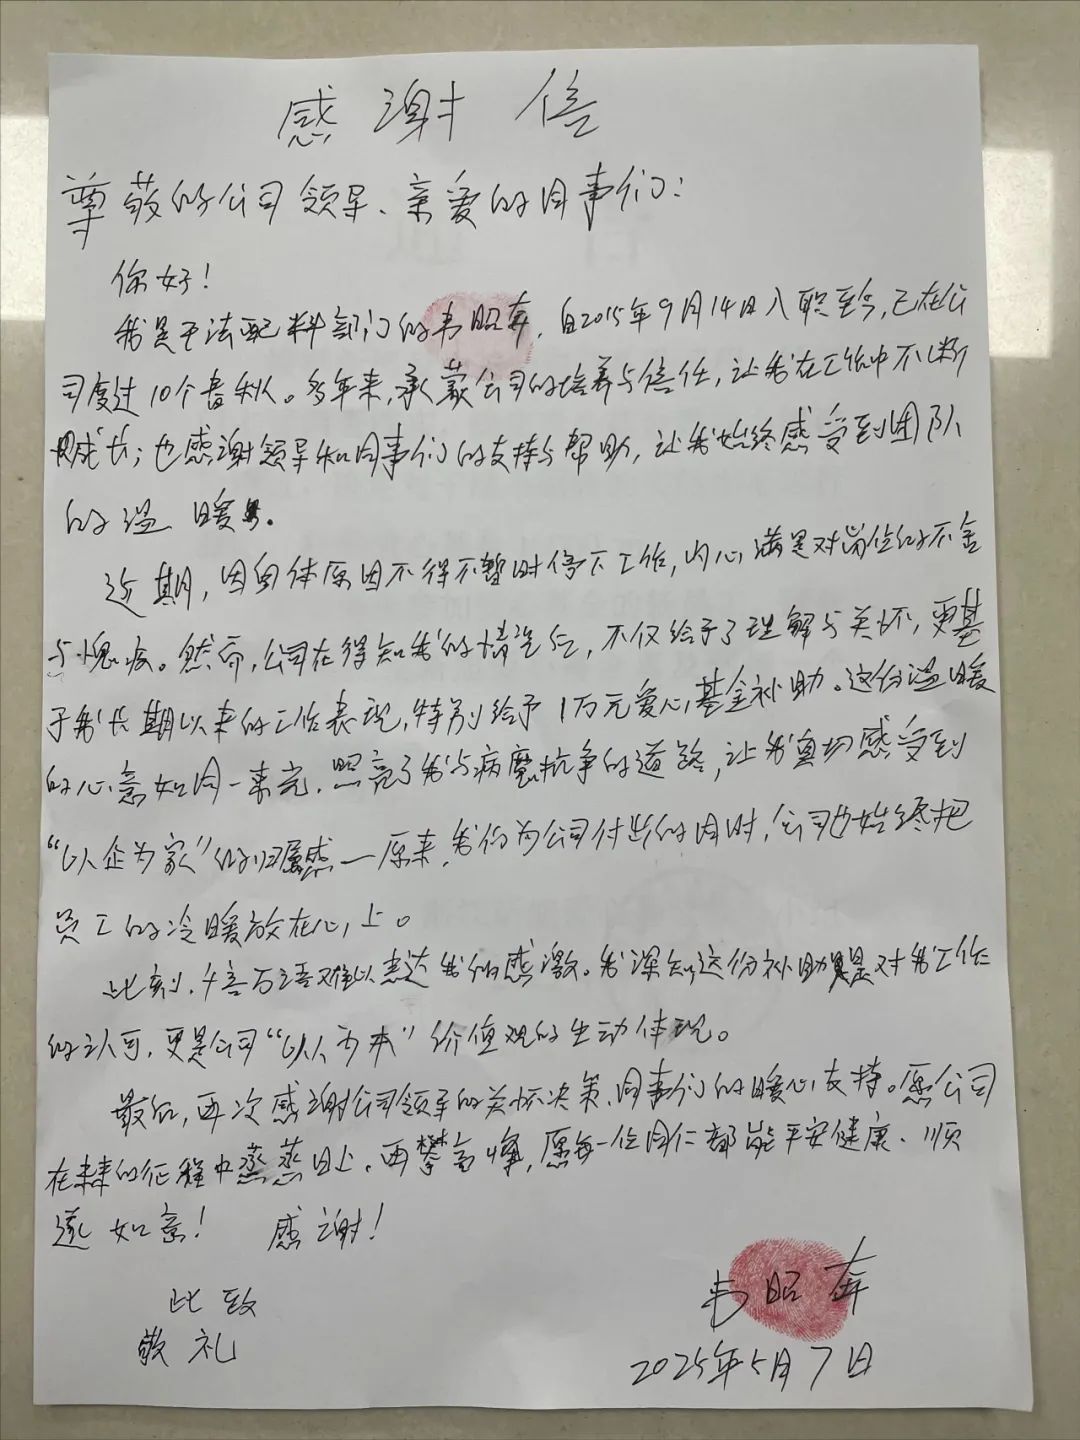 感谢信
尊敬的公司领导、亲爱的同事们：
你好！
我是干法配料部门的韦昭奔，自2015年9月14日入职至今，已在公
司度过10个春秋。多年来，承蒙公司的培养与信任，让我在工作中不断
成长；也感谢领导和同事们的支持与帮助，让我始终感受到团队
的温暖。
近期，因身体原因不得不暂时停下工作，内心满是对岗位的不舍
与愧疚。然而，公司在得知我的情况后，不仅给予了理解与关怀，更基
于我长期以来的工作表现，特别给予1万元爱心基金补助。这份温暖
的心意如同一束光，照亮了我与病魔抗争的道路，让我真切感受到
“以企为家”的归属感—原来，我们为公司付出的同时，公司也始终把
员工的冷暖放在心上。
此刻，千言万语难以表达我的感激。我深知这份补助是对我工作
的认可，更是公司“以人为本”价值观的生动体现。
最后，再次感谢公司领导的关怀决策、同事们的暖心支持。愿公司
在未来的征程中蒸蒸日上，再攀高峰，愿每一位同仁都能平安健康、顺
遂如意！ 感谢！
此致
敬礼
韦昭奔
2025年5月7日